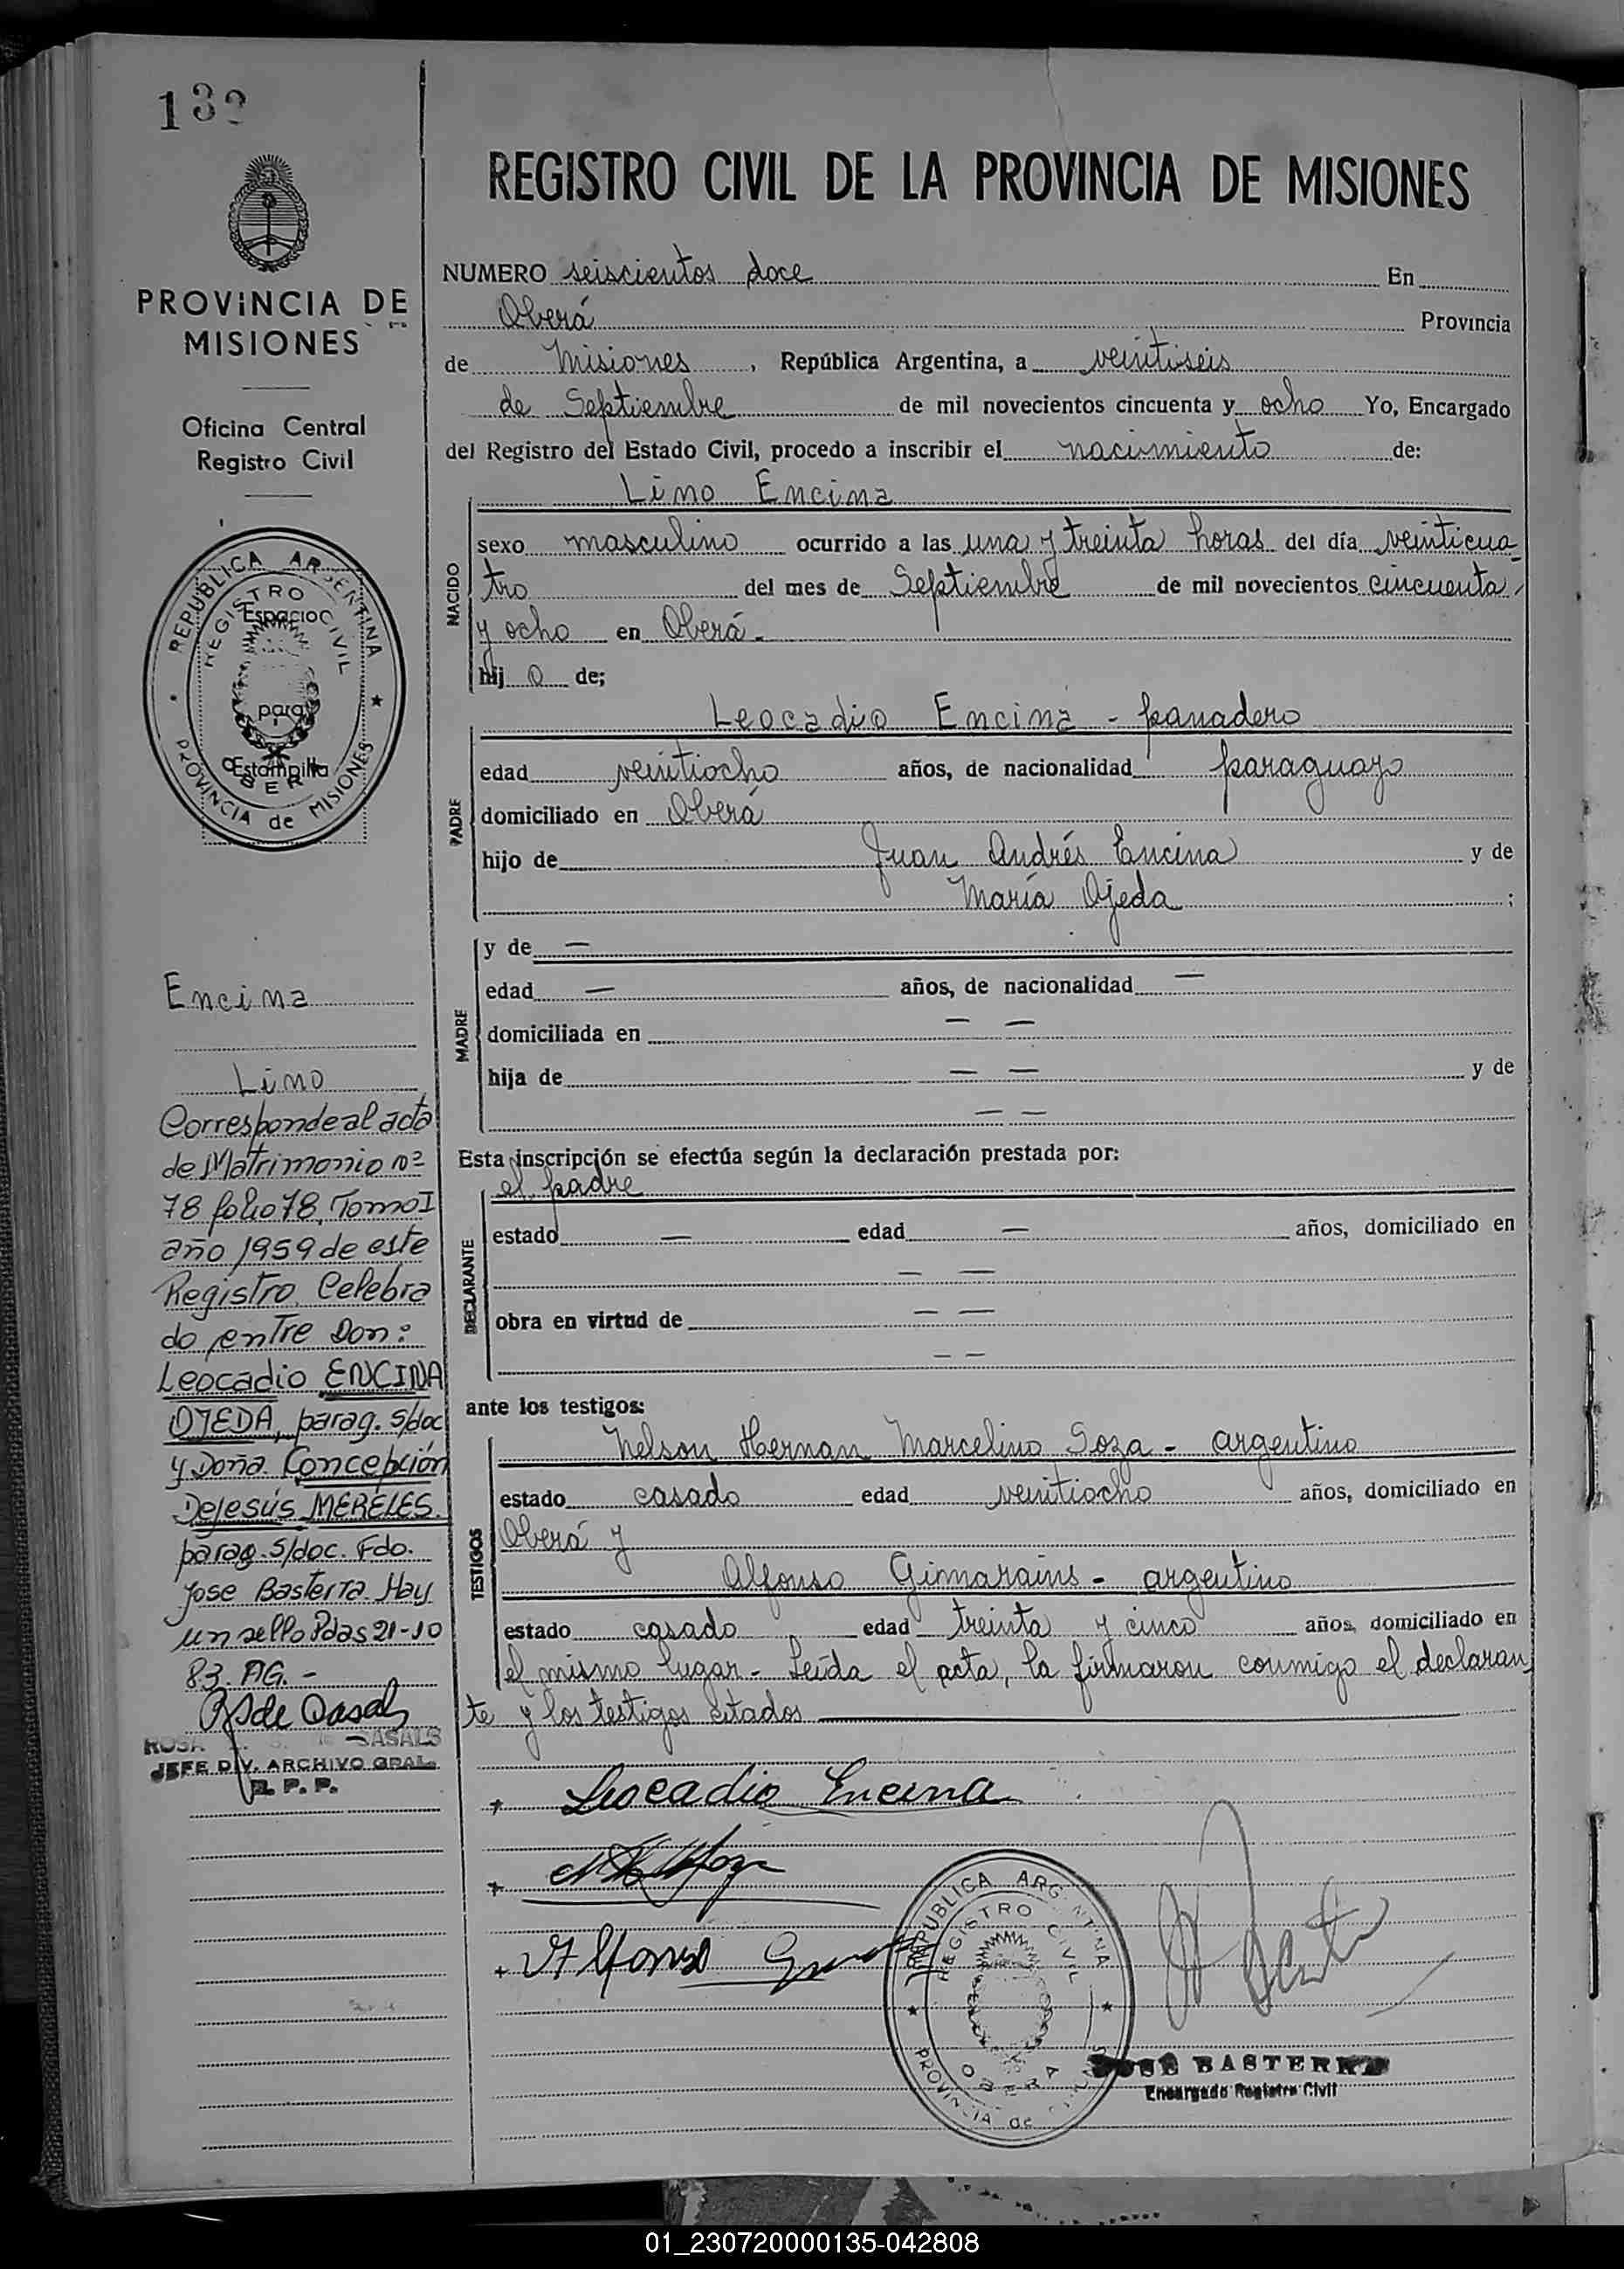 132
PROVINCIA DE
MISIONES
Oficina Central
Registro Civil
REPÚBLICA ARGENTINA
REGISTRO CIVIL
Espacio
para
Estampilla
OBERA
PROVINCIA de MISIONES
Encina
Lino
Corresponde al acta
de Matrimonio nº
78 folio 78, Tomo I
año 1959 de este
Registro. Celebra
do entre Don:
Leocadio ENCINA
OJEDA, parag. s/doc
y Doña. Concepción
DeJesús MERELES.
parag. s/doc. Fdo.
Jose Basterra. Hay
un sello Pdas 21-10
83. AG.-
ROSA CASALS
JEFE DIV. ARCHIVO GRAL.
R. P. P.
REGISTRO CIVIL DE LA PROVINCIA DE MISIONES
NUMERO seiscientos doce En
Oberá Provincia
de Misiones, República Argentina, a veintiseis
de Septiembre de mil novecientos cincuenta y ocho Yo, Encargado
del Registro del Estado Civil, procedo a inscribir el nacimiento de:
Lino Encina
NACIDO
sexo masculino ocurrido a las una y treinta horas del día veinticua-
tro del mes de Septiembre de mil novecientos cincuenta
y ocho en Oberá.-
hij o de;
Leocadio Encina - panadero
PADRE
edad veintiocho años, de nacionalidad paraguayo
domiciliado en Oberá
hijo de Juan Andrés Encina y de
María Ojeda ;
MADRE
y de —
edad — años, de nacionalidad —
domiciliada en — —
hija de — — y de
— —
Esta inscripción se efectúa según la declaración prestada por:
el padre
DECLARANTE
estado — edad — años, domiciliado en
— —
obra en virtud de — —
— —
ante los testigos:
Nelson Hernan Marcelino Soza - argentino
TESTIGOS
estado casado edad veintiocho años, domiciliado en
Oberá y
Alfonso Gimarains - argentino
estado casado edad treinta y cinco años, domiciliado en
el mismo lugar - Leída el acta, la firmaron conmigo el declaran
te y los testigos citados
+ Leocadio Encina
+
+ Alfonso
REPÚBLICA ARGENTINA
REGISTRO CIVIL
OBERA
PROVINCIA de MISIONES
JOSÉ BASTERRA
Encargado Registro Civil
01_230720000135-042808